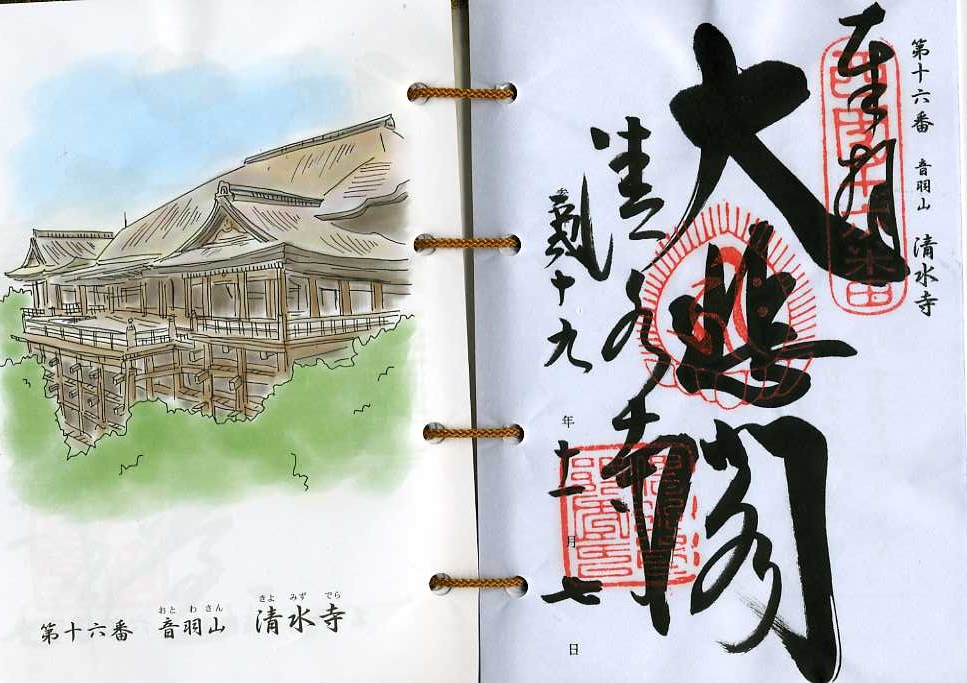 第十六番 音羽山 清水寺
奉拝
大悲閣
清水寺
平成十九年十一月七日
おとわさん きよみずでら
第十六番 音羽山 清水寺